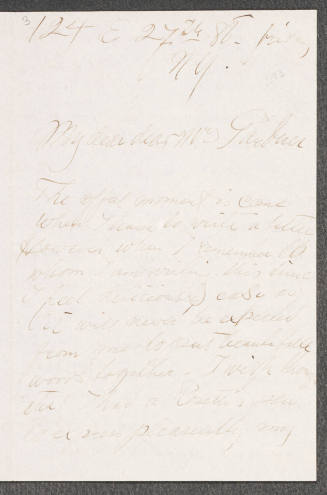 3
124 E 27th St.
N.Y.
My dear dear Mrs Gardner
The moment is come
when I have to write a letter
However when I remember to
whom I am writing this time
I feel deliciously easy as
it will never be expected
from me to put beautiful
words together. I wish
that I had a Poet's
to pleasantly, my